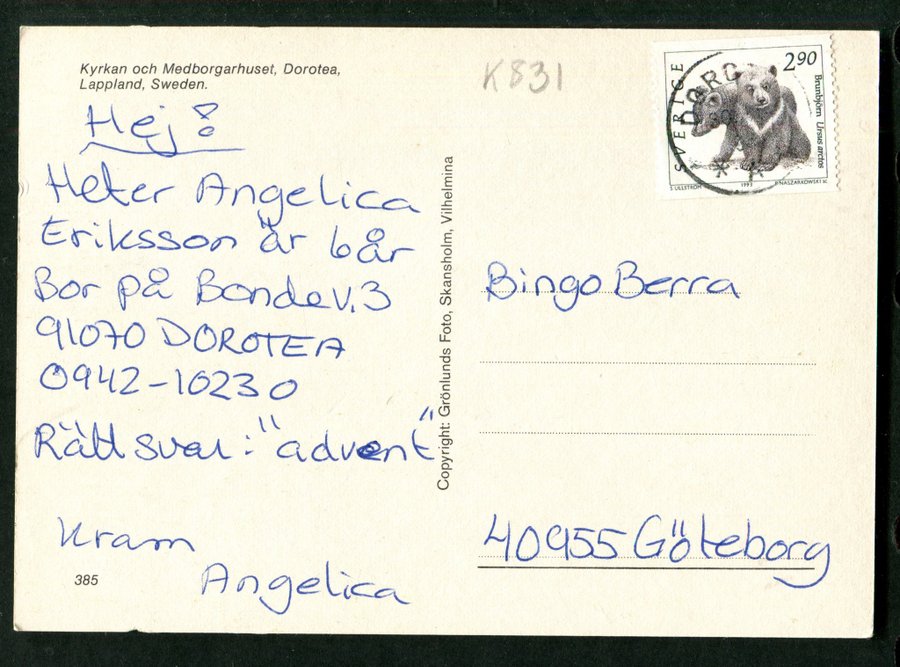 Kyrkan och Medborgarhuset, Dorotea,
Lappland, Sweden.
Hej!
Heter Angelica
Eriksson är 6år
Bor på Bondev.3
91070 DOROTEA
0942-10230
Rätt svar: "advent"
Kram
Angelica
385
Copyright: Grönlunds Foto, Skansholm, Vilhelmina
K831
SVERIGE
2.90
Brunbjörn Ursus arctos
S ULLSTRÖM 1993 P NASZARKOWSKI sc
Bingo Berra
40955 Göteborg